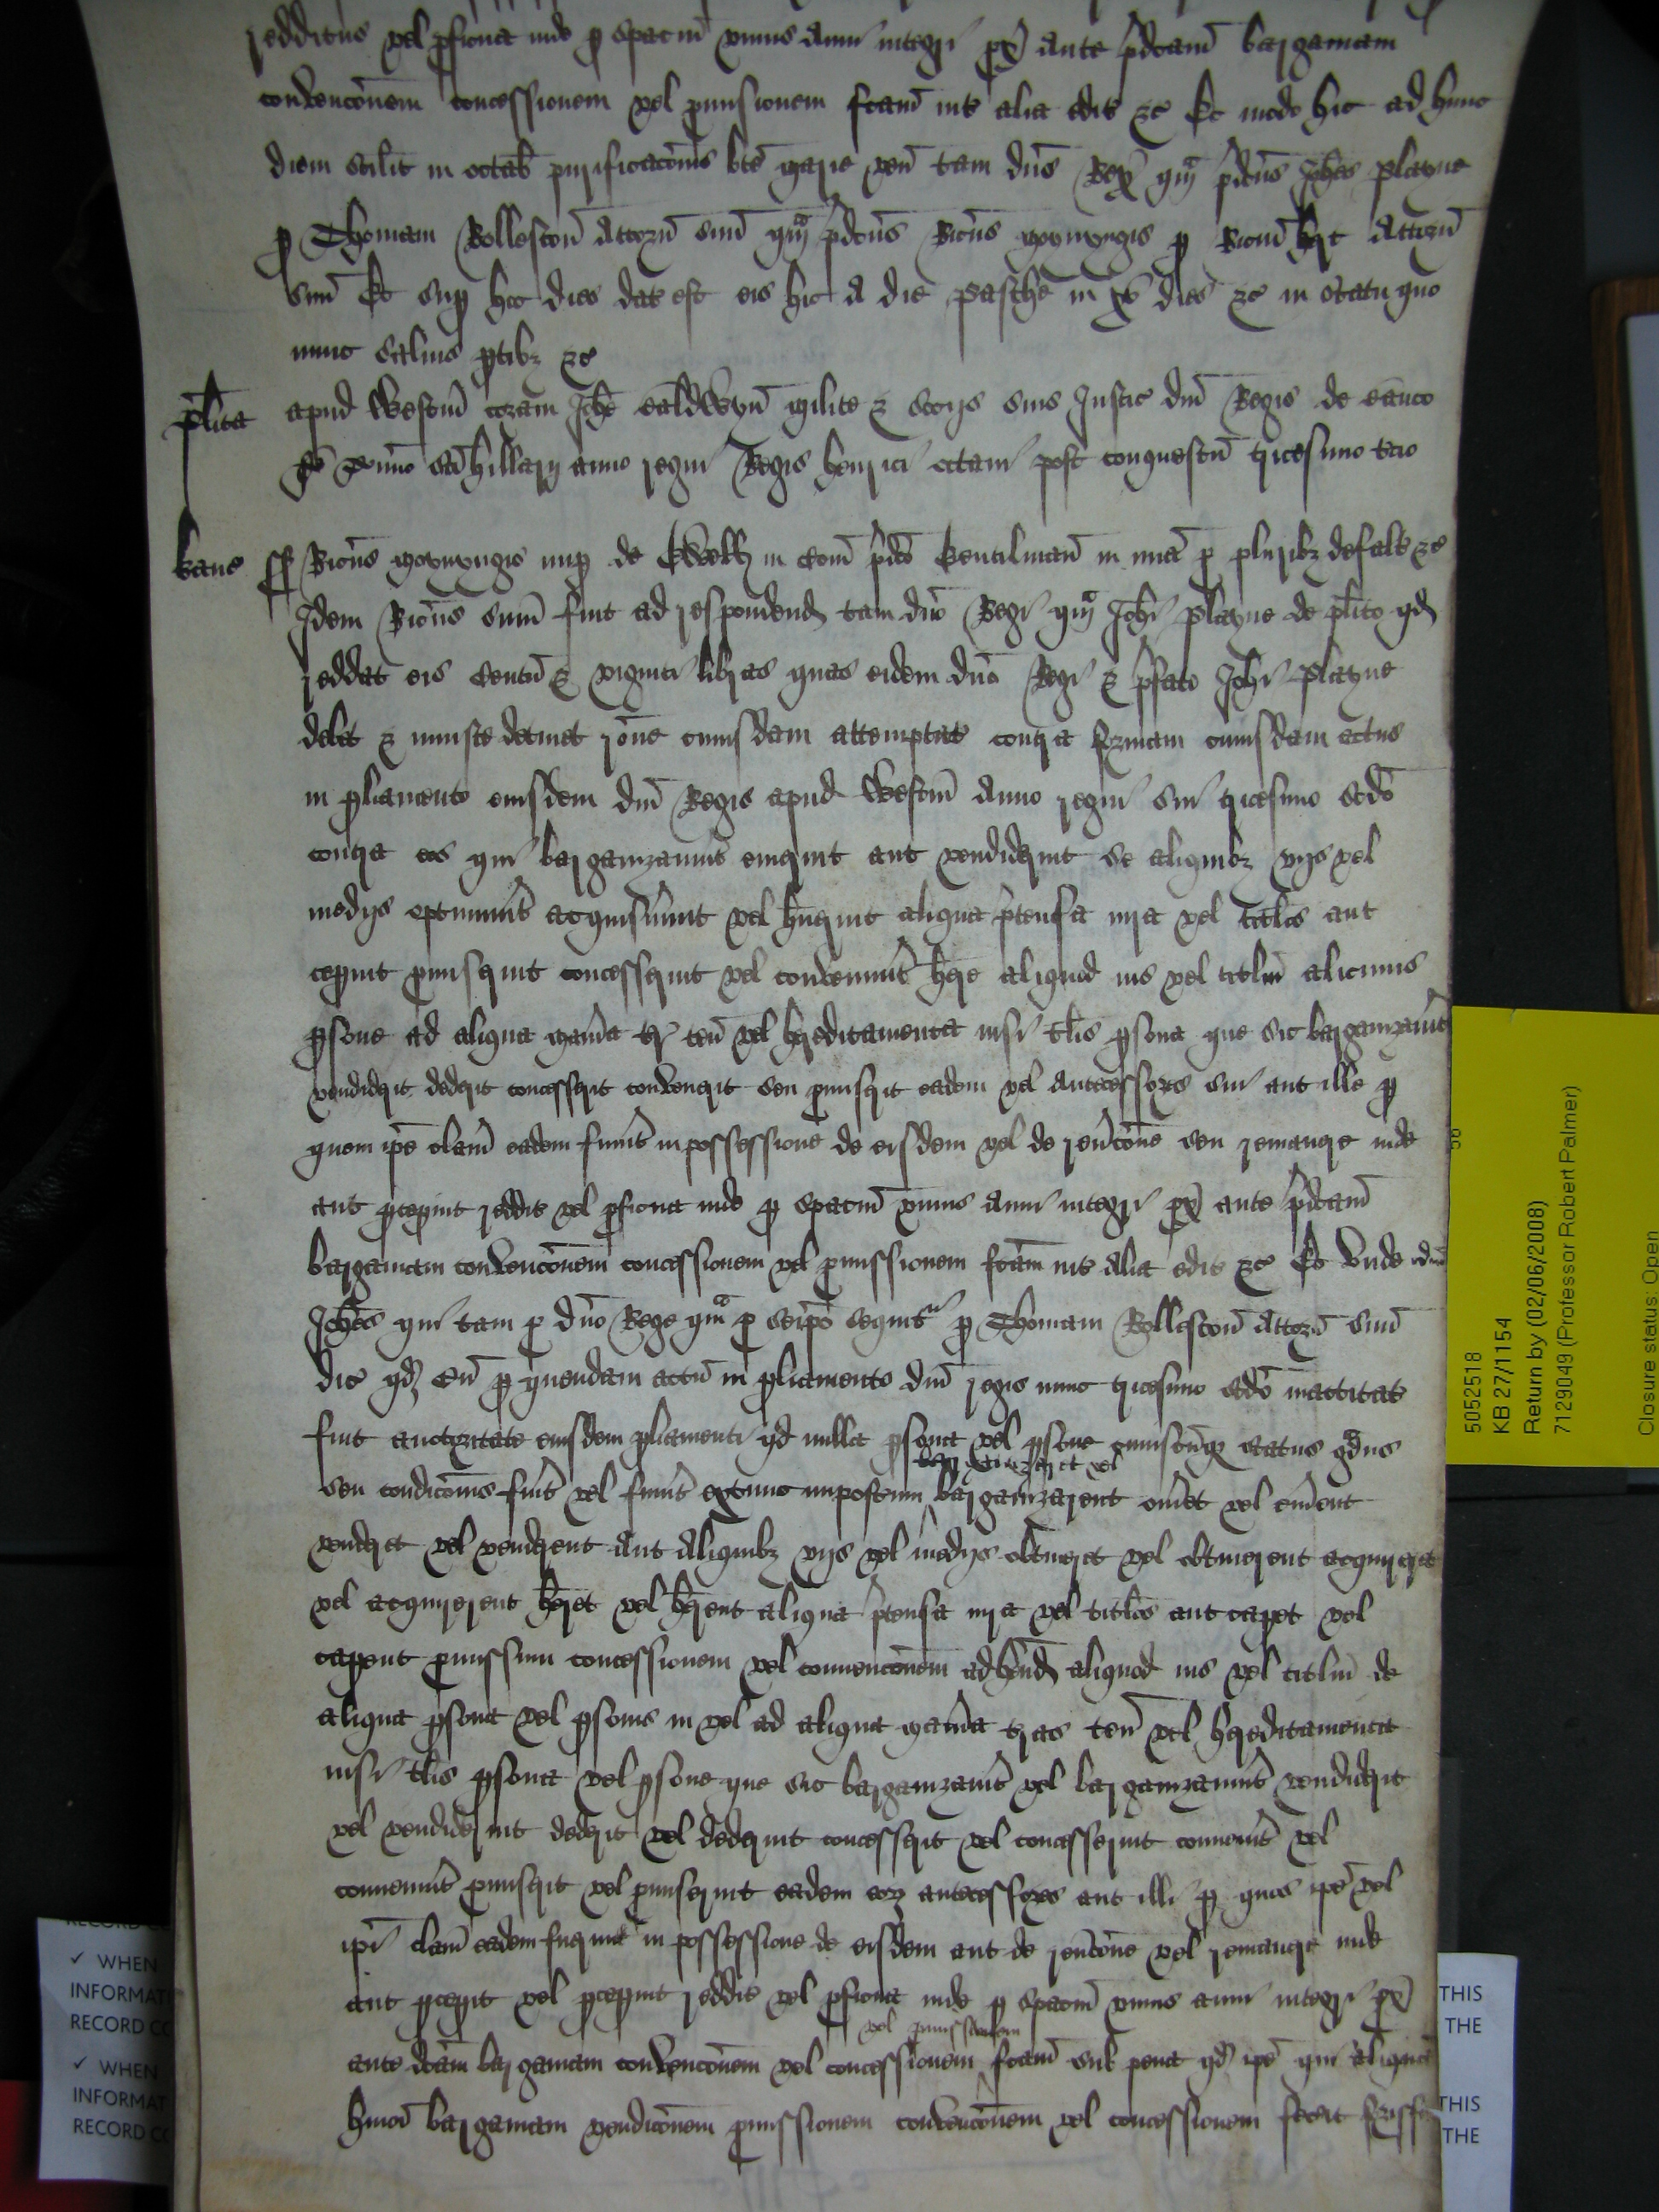 redditus vel p̱ficua inde p̱ spaciu̅ unius anni integri px̱ ante p̱dc̅am bargan̅iam
convenc̅onem concessionem vel p̱missionem fc̅am int̅ alia edit̅ &c Et modo hic ad hunc
diem scil̅t in octab̅ purificac̅onis b̅te Marie ven̅ tam dn̅s Rex qm̅ p̱dc̅us Joh̅es Playne
p̱ Thomam Rolleston̅ Attorn̅ suu̅ qm̅ p̱dc̅us Ric̅us p̱ Attorn̅
suu̅ Et sup̱ hoc dies dat̅ est eis hic a die Pasche in xv dies &c in statu quo
nunc salvis p̱tib₃ &c
pl̅ita apud Westm̅ coram Joh̅e Baldwyn̅ Milite & Soc̅ijs suis Justic̅ dn̅i Regis de Banco
de t̅mino sc̅i Hillarij anno regni Regis Henrici octavi post conquestu̅ tricesimo t̅cio
Kanc̅ ss Ric̅us nup̱ de in Com̅ p̱dc̅o Gentilman̅ in mi̅a p̱ plurib₃ defalt̅ &c
Idem Ric̅us sum̅ fuit ad respondend̅ tam dn̅o Regi qm̅ Joh̅i Playne de pl̅ito qd̅
reddat eis Centu̅ & viginti libras quas eidem dn̅o Regi & p̱fato Joh̅i Playne
debet & iniuste detinet rac̅one cuiusdam attemptat̅ contra formam cuiusdam actus
in p̱liamento eiusdem dn̅i Regis apud Westm̅ Anno regni sui tricesimo sc̅do
contra eos qui barganizav̅int em̅int aut vendid̅int se aliquib₃ vijs vel
medijs optinu̅int acquisiv̅int vel h̅u̅int aliqua p̱tensa iura vel titlos aut
cep̱int p̱mis̅int concess̅int vel conven̅int h̅ere aliquid ius vel titlm̅ alicuius
p̱sone ad aliqua Man̅ia t̅r ten̅ vel h̅editamenta nisi tl̅is p̱sona que sic barganizav̅it
vendid̅it ded̅it concess̅it conven̅it seu p̱mis̅it eadem vel Antecessores sui aut ille p̱
quem ip̅e clam̅ eadem fu̅int in possessione de eisdem vel de rev̅c̅one seu reman̅e inde
aut p̱cep̱int reddit̅ vel p̱ficua inde p̱ spaciu̅ unius anni integri px̱ ante p̱dc̅am
bargan̅iam convenc̅onem concessionem vel p̱missionem fc̅am int̅ alia edit̅ &c Et unde idem
Joh̅es qui tam p̱ dn̅o Rege qm̅ p̱ seip̅o sequit̅r p̱ Thomam Rolleston̅ Attorn̅ suu̅
dic̅ qd̅ Cu̅ p̱ quendam actu̅ in p̱liamento dn̅i regis nunc tricesimo sc̅do inactitat̅
fuit auctoritate eiusdem p̱liamenti qd̅ nulla p̱sona vel p̱sone cuiuscu̅q₃ status gd̅us
barganizaret vel
seu condic̅onis fu̅it vel fu̅int extunc impost̅um barganizarent em̅et vel em̅ent
vend̅et vel vend̅ent aut Aliquib₃ vijs vel medijs obtineret vel obtinerent acquireret
vel acquirerent h̅eret vel h̅erent aliqua p̱tensa iura vel titlos aut cap̱et vel
cap̱ent p̱missum concessionem vel convenc̅onem ad h̅end̅ aliquod ius vel titlm̅ de
aliqua p̱sona vel p̱sonis in vel ad aliqua Man̅ia t̅ras ten̅ vel h̅editamenta
nisi tl̅is p̱sona vel p̱sone que sic barganizav̅it vel barganizav̅int vendid̅it
vel vendiderint ded̅it vel ded̅int concess̅it vel concesserint conven̅it vel
conven̅int p̱mis̅it vel p̱miserint eadem eor₃ antecessores aut illi p̱ quos ip̅e vel
ip̅i clam̅ eadem fu̅int in possessione de eisdem aut de rev̅c̅one vel reman̅e inde
aut p̱cep̱it vel p̱cep̱int reddit̅ vel p̱ficua inde p̱ spaciu̅ unius anni integri px̱
vel p̱missionem
ante dc̅am bargan̅iam convenc̅onem vel concessionem fc̅am sub pena qd̅ ip̅e qui aliquam
hm̅oi bargan̅iam vendic̅onem p̱missionem convenc̅onem vel concessionem fecit
5052518
KB 27/1154
Return by (02/06/2008)
7129049 (Professor Robert Palmer)
Closure status: Open
RECORD CO
✓ WHEN
INFORMAT
RECORD CO
✓ WHEN
INFORMAT
RECORD C
THIS
THE
THIS
THE